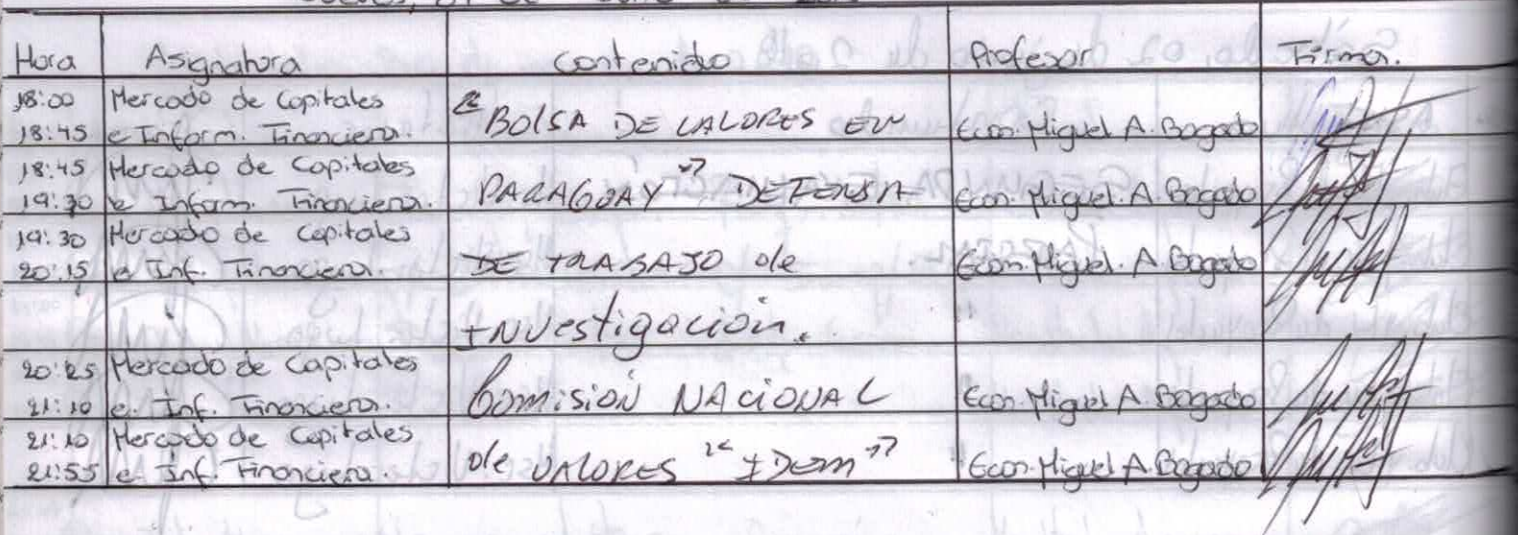 Hora Asignatura Contenido Profesor Firma.
18:00 Mercado de Capitales
18:45 e Inform. Financiera. "BOLSA DE VALORES EN Econ. Miguel A. Bogado
18:45 Mercado de Capitales
19:30 e Inform. Financiera. PARAGUAY" DEFENSA Econ. Miguel. A. Bogado
19:30 Mercado de Capitales
20:15 e Inf. Financiera. DE TRABAJO de Econ. Miguel. A. Bogado
Investigación.
20:25 Mercado de Capitales
21:10 e. Inf. Financiera. Comisión NACIONAL Econ. Miguel A. Bogado
21:10 Mercado de Capitales
21:55 e. Inf. Financiera. de VALORES "IDEM" Econ. Miguel A. Bogado